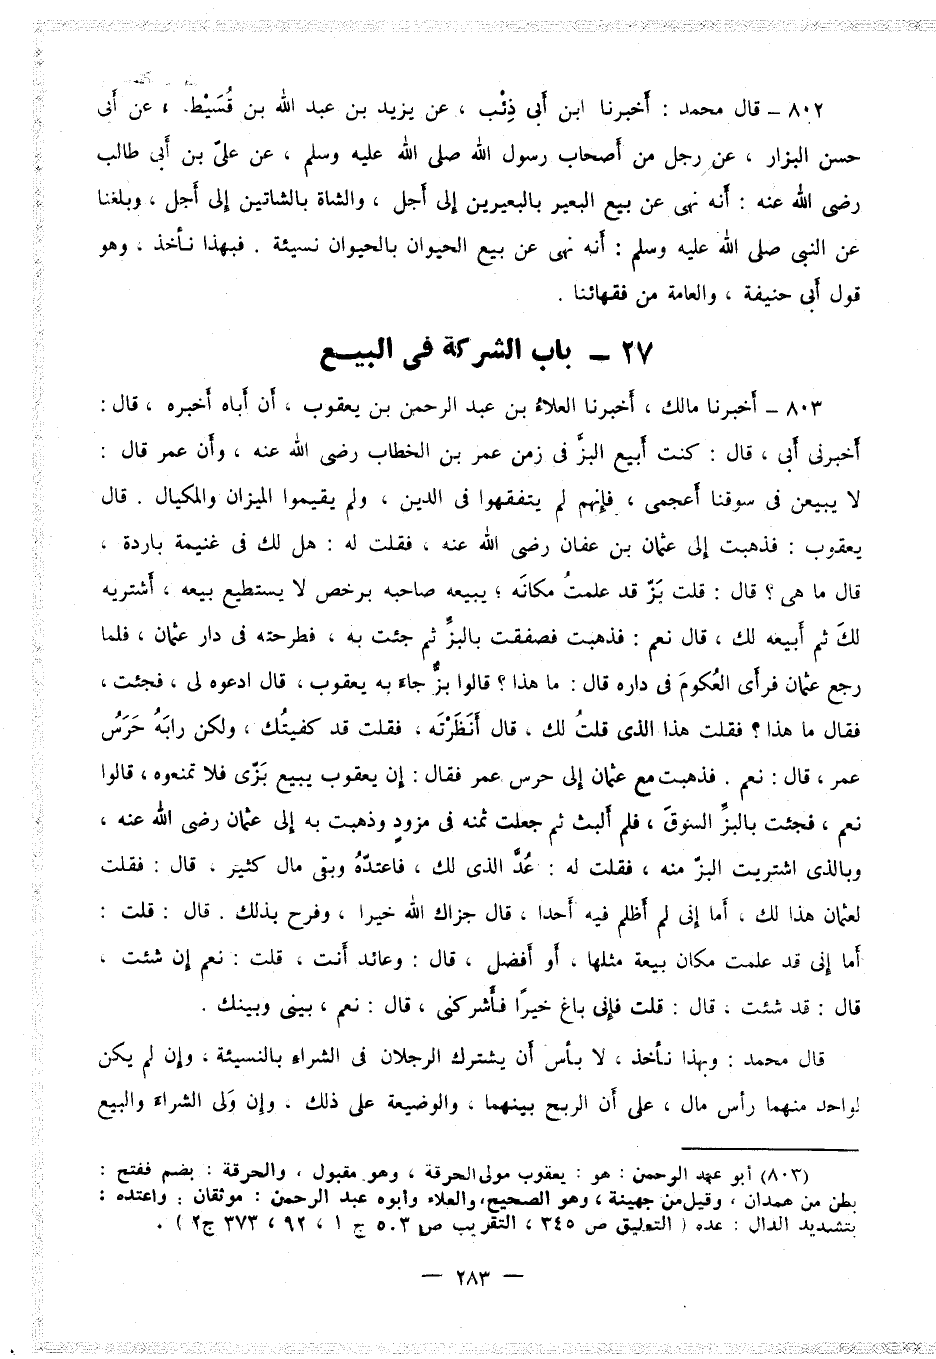 ٨٠٢ – قال محمد : أخبرنا ابن أبى ذِئْب ، عن يزيد بن عبد الله بن قُسَيْط ، عن أبى
حسن البزار ، عن رجل من أصحاب رسول الله صلى الله عليه وسلم ، عن علىّ بن أبى طالب
رضى الله عنه : أنه نهى عن بيع البعير بالبعيرين إلى أجل ، والشاة بالشاتين إلى أجل ، وبلغنا
عن النبى صلى الله عليه وسلم : أنه نهى عن بيع الحيوان بالحيوان نسيئة . فبهذا نأخذ ، وهو
قول أبى حنيفة ، والعامة من فقهائنا .
٢٧ – باب الشركة فى البيـع
٨٠٣ – أخبرنا مالك ، أخبرنا العلاءُ بن عبد الرحمن بن يعقوب ، أن أباه أخبره ، قال :
أخبرنى أبى ، قال : كنت أبيع البزَّ فى زمن عمر بن الخطاب رضى الله عنه ، وأن عمر قال :
لا يبيعن فى سوقنا أعجمى ، فإنهم لم يتفقهوا فى الدين ، ولم يقيموا الميزان والمكيال . قال
يعقوب : فذهبت إلى عثمان بن عفان رضى الله عنه ، فقلت له : هل لك فى غنيمة باردة ،
قال ما هى ؟ قال : قلت بَزّ قد علمتُ مكانَه ؛ يبيعه صاحبه برخص لا يستطيع بيعه ، أشتريه
لكَ ثم أبيعه لك ، قال نعم : فذهبت فصفقت بالبزِّ ثم جئت به ، فطرحته فى دار عثمان ، فلما
رجع عثمان فرأى العُكومَ فى داره قال : ما هذا ؟ قالوا بزٌّ جاء به يعقوب ، قال ادعوه لى ، فجئت ،
فقال ما هذا ؟ فقلت هذا الذى قلتُ لك ، قال أَنَظَرْتَه ، فقلت قد كفيتُك ، ولكن رابَهُ حَرَسُ
عمر ، قال : نعم . فذهبت مع عثمان إلى حرس عمر فقال : إن يعقوب يبيع بَزّى فلا تمنعوه ، قالوا
نعم ، فجئت بالبزِّ السوقَ ، فلم ألبث ثم جعلت ثمنه فى مزودٍ وذهبت به إلى عثمان رضى الله عنه ،
وبالذى اشتريت البزّ منه ، فقلت له : عُدَّ الذى لك ، فاعتدّهُ وبقى مال كثير ، قال : فقلت
لعثمان هذا لك ، أما إنى لم أظلم فيه أحدا ، قال جزاك الله خيرا ، وفرح بذلك . قال : قلت :
أما إنى قد علمت مكان بيعة مثلها ، أو أفضل ، قال : وعائد أنت ، قلت : نعم إن شئت ،
قال : قد شئت ، قال : قلت فإنى باغ خيرًا فأشركنى ، قال : نعم ، بينى وبينك .
قال محمد : وبهذا نأخذ ، لا بأس أن يشترك الرجلان فى الشراء بالنسيئة ، وإن لم يكن
لواحد منهما رأس مال ، على أن الربح بينهما ، والوضيعة على ذلك . وإن وَلى الشراءَ والبيع
(٨٠٣) أبو عبد الرحمن : هو : يعقوب مولى الحرقة ، وهو مقبول ، والحرقة : بضم ففتح :
بطن من همدان ، وقيل من جهينة ، وهو الصحيح، والعلاء وأبوه عبد الرحمن : موثقان . واعتده :
بتشديد الدال : عده ( التعليق ص ٣٤٥ ، التقريب ص ٥٠٣ ج ١ ، ٩٢ ، ٣٧٣ ج٢ ) .
– ٢٨٣ –